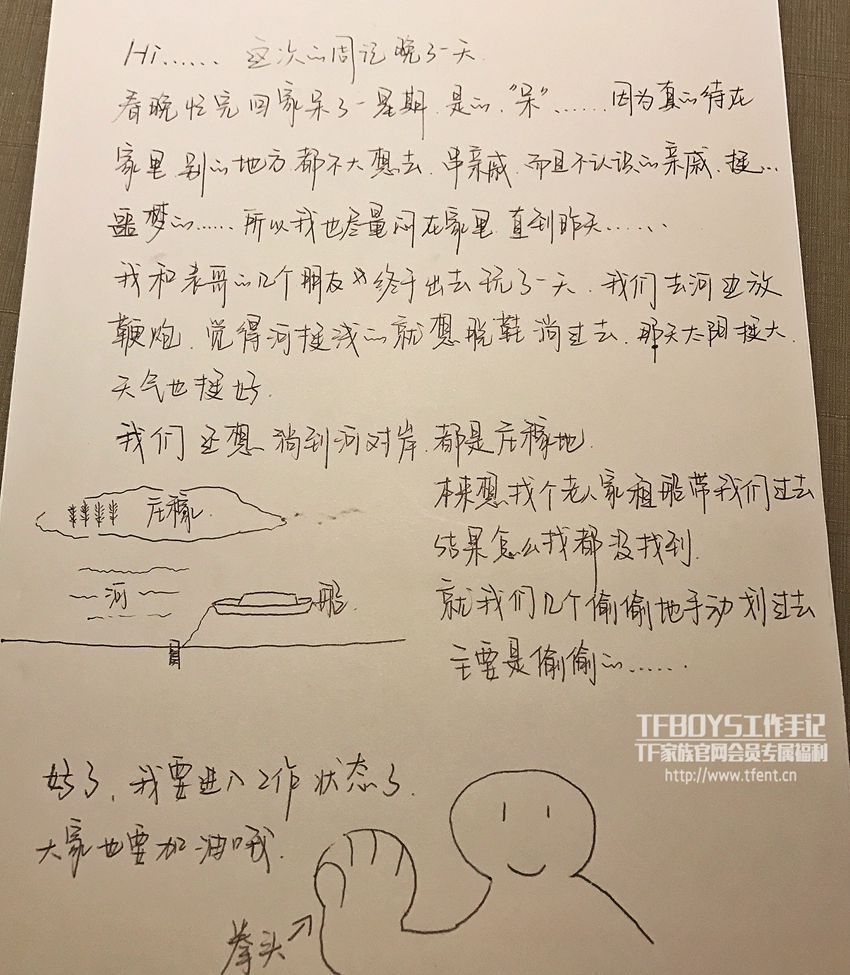 Hi...... 这次的周记晚了一天
春晚忙完回家呆了一星期.是的."呆"......因为真的待在
家里.别的地方都不大想去.串亲戚.而且不认识的亲戚.挺...
噩梦的......所以我也尽量闷在家里.直到昨天......
我和表哥的几个朋友终于出去玩了一天.我们去河边放
鞭炮.觉得河挺浅的就想脱鞋淌过去.那天太阳挺大.
天气也挺好.
我们还想淌到河对岸.都是庄稼地.
本来想找个老人家租船带我们过去
结果怎么找都没找到.
就我们几个偷偷地手动划过去
主要是偷偷的......
庄稼
河
船
好了,我要进入工作状态了.
大家也要加油哦.
拳头
TFBOYS工作手记
TF家族官网会员专属福利
http://www.tfent.cn